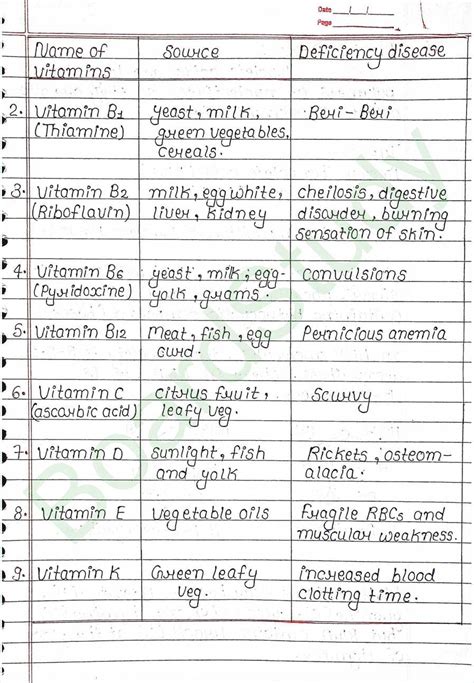 Date
Page
Name of vitamins | Source | Deficiency disease
2. Vitamin B1 (Thiamine) | yeast, milk, green vegetables, cereals. | Beri-Beri
3. Vitamin B2 (Riboflavin) | milk, egg white, liver, kidney | cheilosis, digestive disorder, burning sensation of skin.
4. Vitamin B6 (Pyridoxine) | yeast, milk, egg-yolk, grams. | convulsions
5. Vitamin B12 | Meat, fish, egg curd. | Pernicious anemia
6. Vitamin C (ascorbic acid) | citrus fruit, leafy veg. | Scurvy
7. Vitamin D | Sunlight, fish and yolk | Rickets, osteomalacia.
8. Vitamin E | vegetable oils | Fragile RBCs and muscular weakness.
9. Vitamin K | Green leafy veg. | increased blood clotting time.
Boardstudy